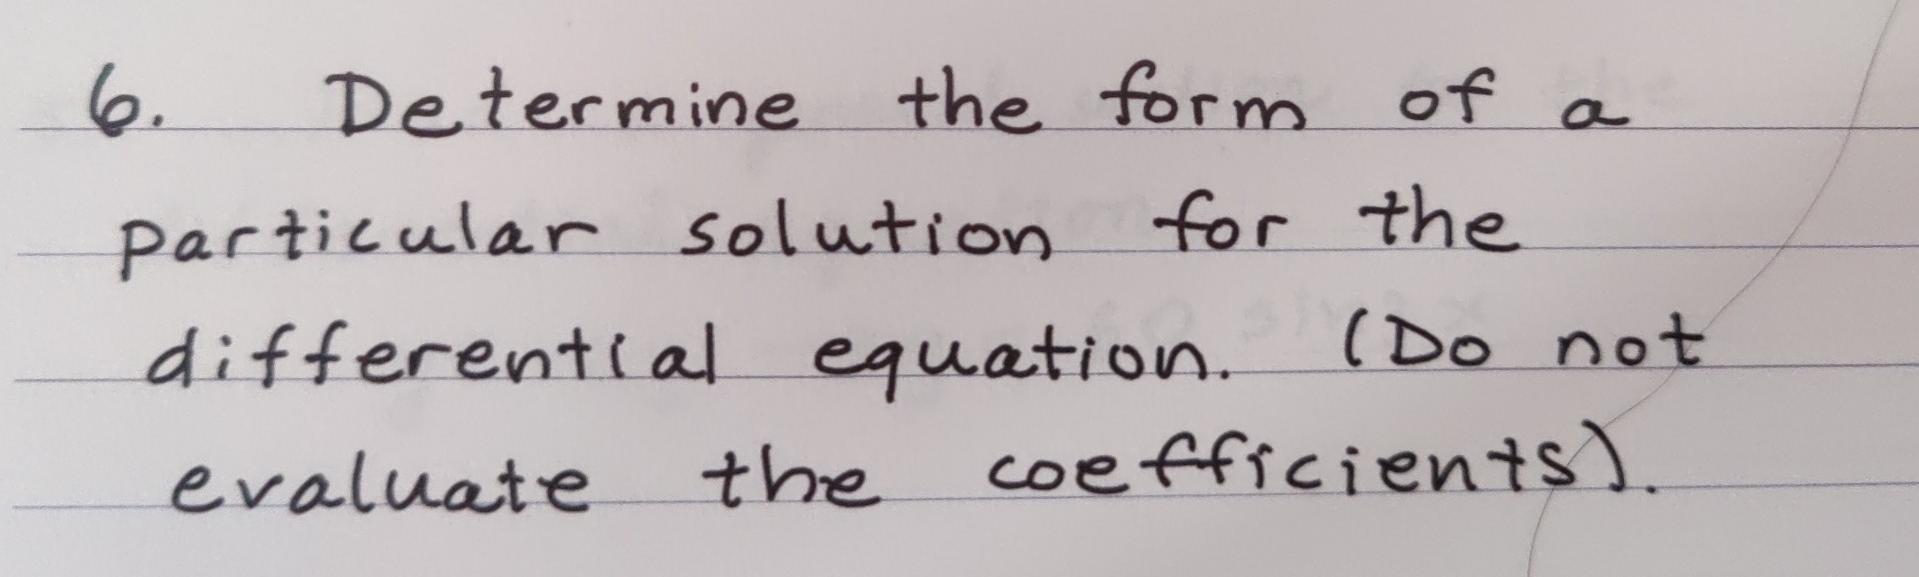 6. Determine the form of a
particular solution for the
differential equation. (Do not
evaluate the coefficients).